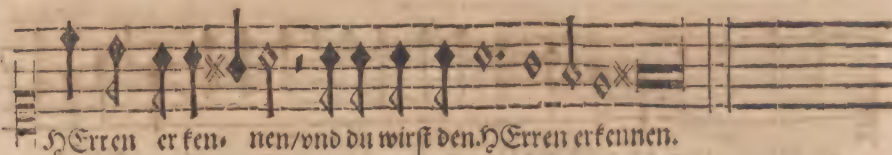 HErren er ken⸗ nen/vnd du wirſt den HErren erkennen.